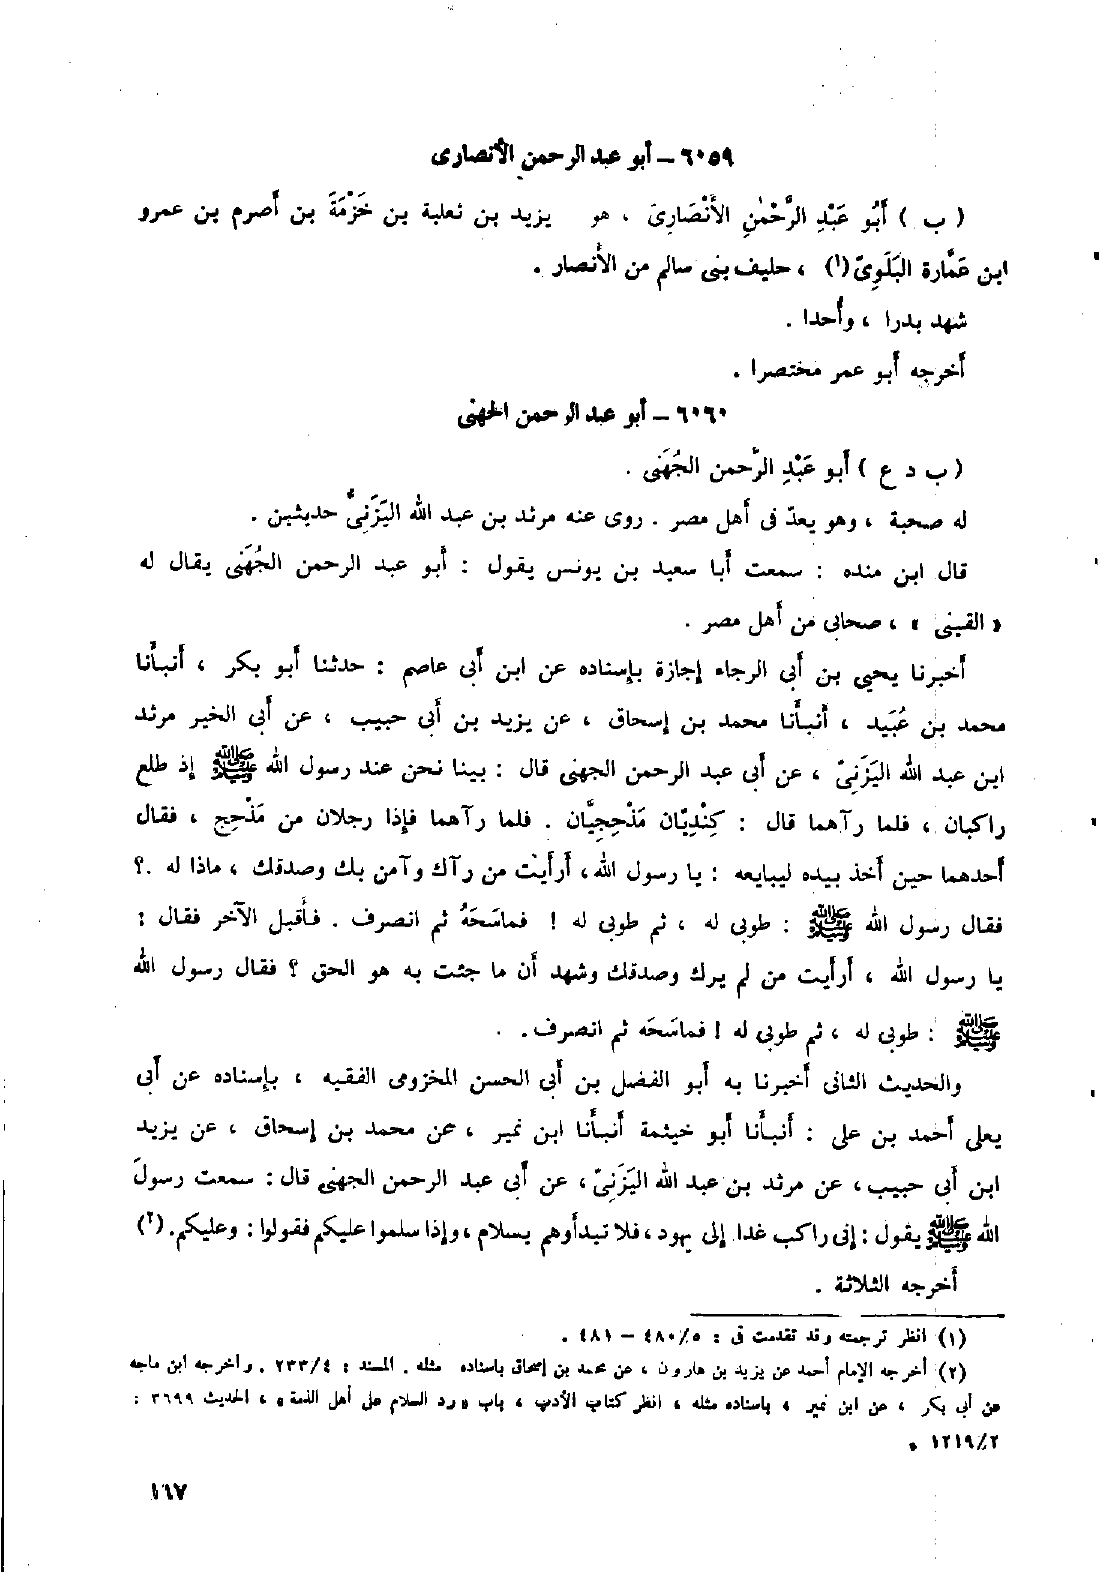 ٦٠٥٩ – أبو عبد الرحمن الأنصارى
( ب ) أَبُو عَبْدِ الرَّحْمٰنِ الأَنْصَارِىّ ، هو يزيد بن ثعلبة بن خَزْمَةَ بن أصرم بن عمرو
ابن عَمَّارة البَلَوِىّ(١) ، حليف بنى سالم من الأنصار .
شهد بدرا ، وأُحدا .
أخرجه أبو عمر مختصرا .
٦٠٦٠ – أبو عبد الرحمن الجهنى
( ب د ع ) أَبو عَبْدِ الرَّحمن الجُهَنى .
له صحبة ، وهو يعدّ فى أهل مصر . روى عنه مرثد بن عبد الله اليَزَنىُّ حديثين .
قال ابن منده : سمعت أبا سعيد بن يونس يقول : أبو عبد الرحمن الجُهَنى يقال له
« القينى » ، صحابى من أهل مصر .
أخبرنا يحيى بن أبى الرجاء إجازة بإسناده عن ابن أبى عاصم : حدثنا أبو بكر ، أنبأنا
محمد بن عُبَيد ، أنبأنا محمد بن إسحاق ، عن يزيد بن أبى حبيب ، عن أبى الخير مرثد
ابن عبد الله اليَزَنىّ ، عن أبى عبد الرحمن الجهنى قال : بينا نحن عند رسول الله ﷺ إذ طلع
راكبان ، فلما رآهما قال : كِنْدِيَّان مَذْحِجِيَّان . فلما رآهما فإذا رجلان من مَذْحِج ، فقال
أحدهما حين أخذ بيده ليبايعه : يا رسول الله، أرأيت من رآك وآمن بك وصدقك ، ماذا له .؟
فقال رسول الله ﷺ : طوبى له ، ثم طوبى له ! فماسَحَهُ ثم انصرف . فأقبل الآخر فقال :
يا رسول الله ، أرأيت من لم يرك وصدقك وشهد أن ما جئت به هو الحق ؟ فقال رسول الله
ﷺ : طوبى له ، ثم طوبى له ! فماسَحَه ثم انصرف .
والحديث الثانى أخبرنا به أبو الفضل بن أبى الحسن المخزومى الفقيه ، بإسناده عن أبى
يعلى أحمد بن على : أنبأنا أبو خيثمة أنبأنا ابن نمير ، عن محمد بن إسحاق ، عن يزيد
ابن أبى حبيب، عن مرثد بن عبد الله اليَزَنىّ، عن أبى عبد الرحمن الجهنى قال : سمعت رسولَ
الله ﷺ يقول : إنى راكب غدا إلى يهود، فلا تبدأوهم بسلام ، وإذا سلموا عليكم فقولوا : وعليكم.(٢)
أخرجه الثلاثة .
(١) انظر ترجمته وقد تقدمت فى : ٤٨٠/٥ – ٤٨١ .
(٢) أخرجه الإمام أحمد عن يزيد بن هارون ، عن محمد بن إسحاق بإسناده مثله . المسند : ٢٣٣/٤ . وأخرجه ابن ماجه
عن أبى بكر ، عن ابن نمير ، بإسناده مثله ، انظر كتاب الأدب ، باب « رد السلام على أهل الذمة » ، الحديث ٣٦٩٩ :
١٢١٩/٢ .
١٦٧